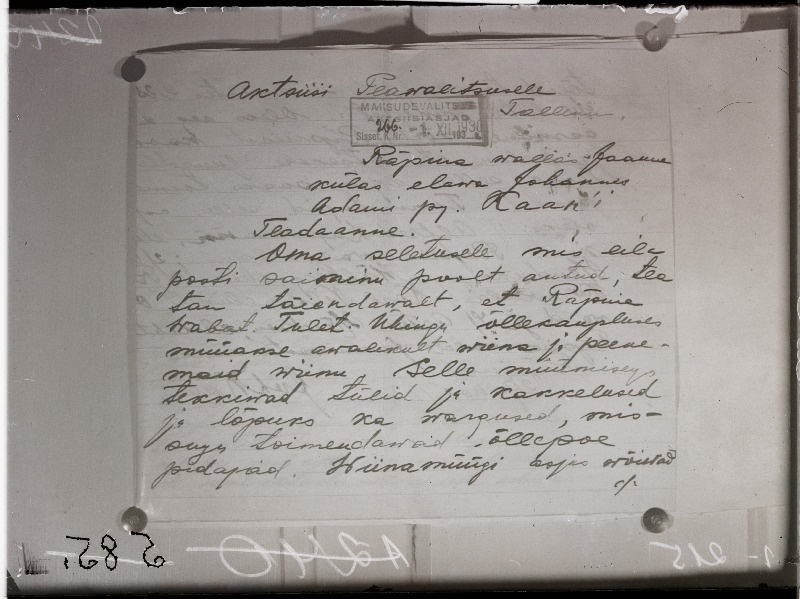 Aktsiisi Peawalitsusele
MAKSUDEVALITSUS
AKTSIISIASJAD
266. -1. XII 1930
Sisset. K. Nr.
Tallinn.
Räpina wallas Jaama
külas elawa Johannes
Adami pg. Kaar'i
Teadaanne.
Oma seletusele mis eila
posti sai minu poolt antud, tea
tan täiendawalt, et Räpina
Wabat. Tulet. Uhingu õllekaupluses
müüakse awalikult wiina ja peene-
maid wiinu. Selle müümisega
tekkiwad tülid ja kakkelused
ja lõpuks ka wargused, mis-
sugu toimendawad õllepoe
pidajad. Wiinamüügi asjas wõiwad
·/·
585.
A240
1-215